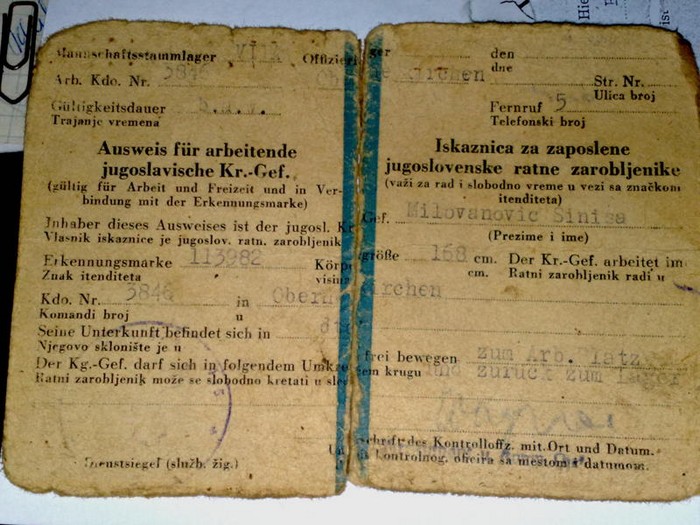 Mannschaftsstammlager VI/A Offizierlager den
dne
Arb. Kdo. Nr. 3846 Str. Nr.
Ulica broj
Gültigkeitsdauer Fernruf 5
Trajanje vremena Telefonski broj
Ausweis für arbeitende
jugoslavische Kr.-Gef.
(gültig für Arbeit und Freizeit und in Ver-
bindung mit der Erkennungsmarke)
Iskaznica za zaposlene
jugoslovenske ratne zarobljenike
(važi za rad i slobodno vreme u vezi sa značkom
itenditeta)
Inhaber dieses Ausweises ist der jugosl. Kr Gef. Milovanovic Sinisa
Vlasnik iskaznice je jugoslov. ratn. zarobljenik (Prezime i ime)
Erkennungsmarke 113982 Körpergröße 168 cm. Der Kr.-Gef. arbeitet im
Znak itenditeta visina cm. Ratni zarobljenik radi u
Kdo. Nr. 3846 in Obernkirchen
Komandi broj u
Seine Unterkunft befindet sich in
Njegovo sklonište je u
Der Kg.-Gef. darf sich in folgendem Umkre frei bewegen zum Arb. Platz
Ratni zarobljenik može se slobodno kretati u sle em krugu und zurück zum Lager
schrift des Kontrolloffz. mit Ort und Datum.
Dienstsiegel (služb. žig.) kontrolnog. oficira sa mestom i datumom.